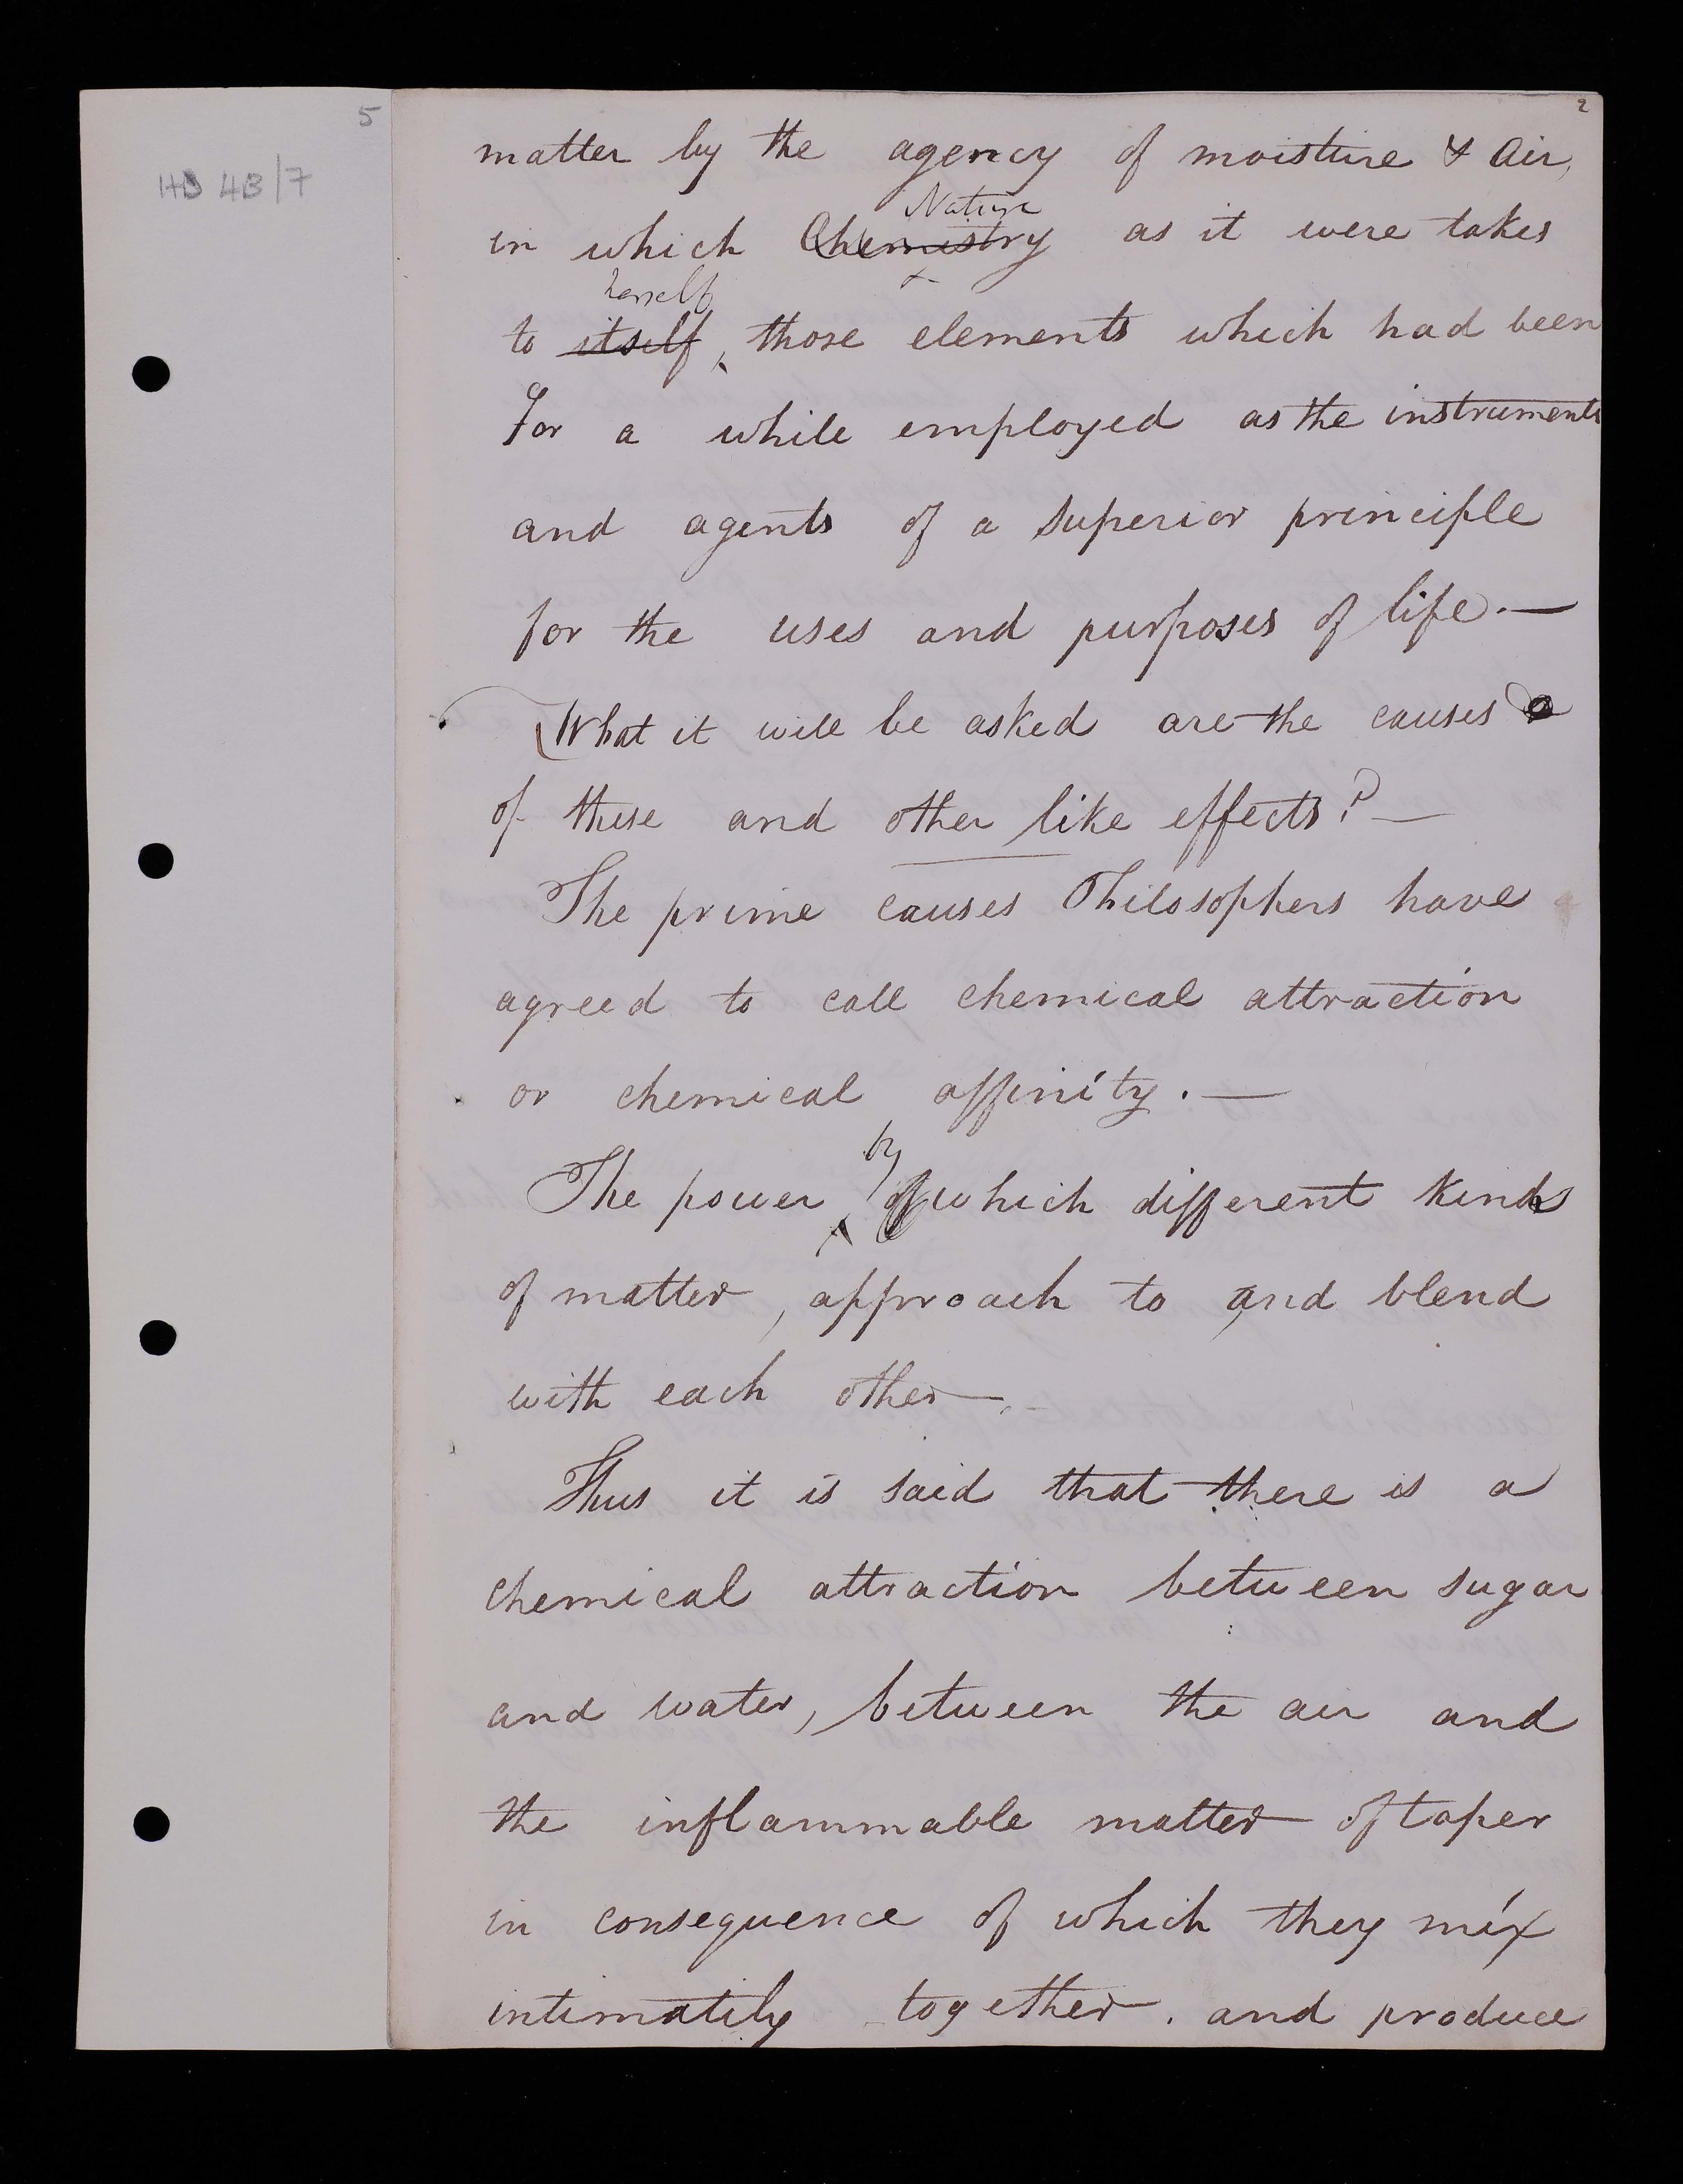 5
HD 4B/7
2
matter by the agency of moisture & Air,
Nature
in which Chemistry as it were takes
herself
to itself, those elements which had been
for a while employed as the instruments
and agents of a superior principle
for the uses and purposes of life.—
What it will be asked are the causes
of these and other like effects?—
The prime causes Philosophers have
agreed to call chemical attraction
or chemical affinity.—
by
The power of which different kinds
of matter, approach to and blend
with each other—.
Thus it is said that there is a
chemical attraction between sugar
and water, between the air and
the inflammable matter of taper
in consequence of which they mix
intimately together. and produce